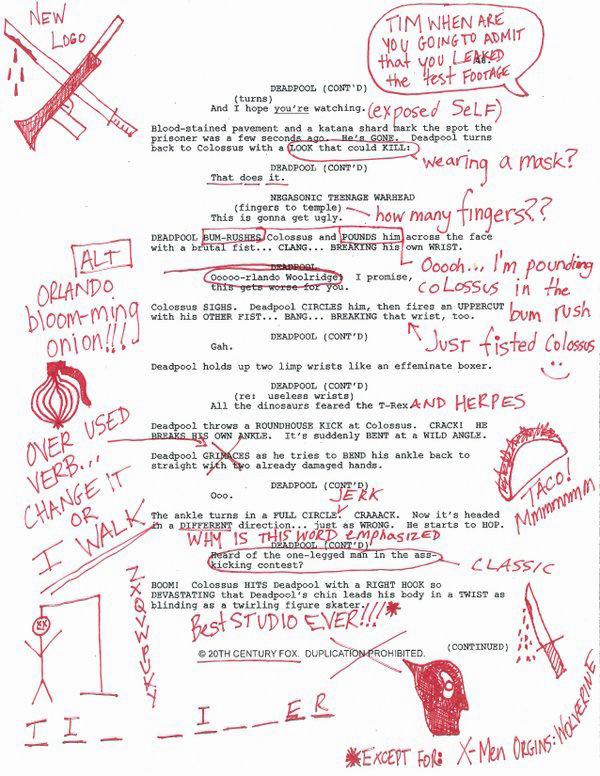 NEW
LOGO
TIM WHEN ARE
YOU GOING TO ADMIT
that you LEAKED
the test FOOTAGE
DEADPOOL (CONT'D)
(turns)
And I hope you're watching.
(exposed SELF)
Blood-stained pavement and a katana shard mark the spot the
prisoner was a few seconds ago. He's GONE. Deadpool turns
back to Colossus with a LOOK that could KILL:
wearing a mask?
DEADPOOL (CONT'D)
That does it.
NEGASONIC TEENAGE WARHEAD
(fingers to temple)
This is gonna get ugly.
how many fingers??
DEADPOOL BUM-RUSHES Colossus and POUNDS him across the face
with a brutal fist... CLANG... BREAKING his own WRIST.
Ooooh... I'm pounding
COLOSSUS in the
bum rush
DEADPOOL
Ooooo-rlando Woolridge! I promise,
this gets worse for you.
ALT
ORLANDO
bloom-ming
onion!!!!
Colossus SIGHS. Deadpool CIRCLES him, then fires an UPPERCUT
with his OTHER FIST... BANG... BREAKING that wrist, too.
Just fisted Colossus
DEADPOOL (CONT'D)
Gah.
Deadpool holds up two limp wrists like an effeminate boxer.
DEADPOOL (CONT'D)
(re: useless wrists)
All the dinosaurs feared the T-Rex
AND HERPES
Deadpool throws a ROUNDHOUSE KICK at Colossus. CRACK! HE
BREAKS HIS OWN ANKLE. It's suddenly BENT at a WILD ANGLE.
OVER USED
VERB...
CHANGE IT
OR
I WALK
Deadpool GRIMACES as he tries to BEND his ankle back to
straight with two already damaged hands.
TACO!
Mmmmmmm
DEADPOOL (CONT'D)
Ooo.
JERK
The ankle turns in a FULL CIRCLE. CRAAACK. Now it's headed
in a DIFFERENT direction... just as WRONG. He starts to HOP.
WHY IS THIS WORD emphasized
DEADPOOL (CONT'D)
Heard of the one-legged man in the ass-
kicking contest?
CLASSIC
BOOM! Colossus HITS Deadpool with a RIGHT HOOK so
DEVASTATING that Deadpool's chin leads his body in a TWIST as
blinding as a twirling figure skater.
Best STUDIO EVER!!!*
© 20TH CENTURY FOX. DUPLICATION PROHIBITED.
(CONTINUED)
T I _ _ _ I _ _ E R
*EXCEPT FOR: X-Men ORGINS: WOLVERINE